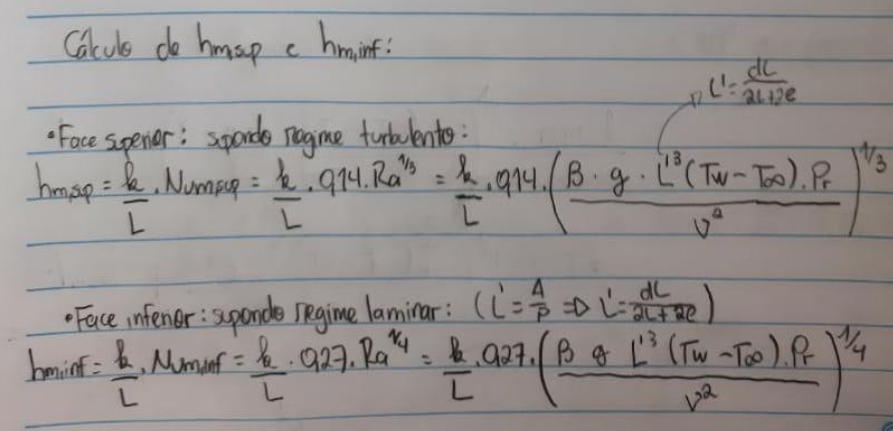 Cálculo de hm,sup e hm,inf:
L' = dL/2L+2e
• Face superior: supondo regime turbulento:
hm,sup = k/L . Numsup = k/L . 0,14 . Ra^1/3 = k/L . 0,14 . (β . g . L'^3 (Tw - T∞) . Pr / ν^2)^1/3
• Face inferior: supondo regime laminar: (L' = A/P => L' = dL/2L+2e)
hm,inf = k/L . Num,inf = k/L . 0,27 . Ra^1/4 = k/L . 0,27 . (β g L'^3 (Tw - T∞) . Pr / ν^2)^1/4